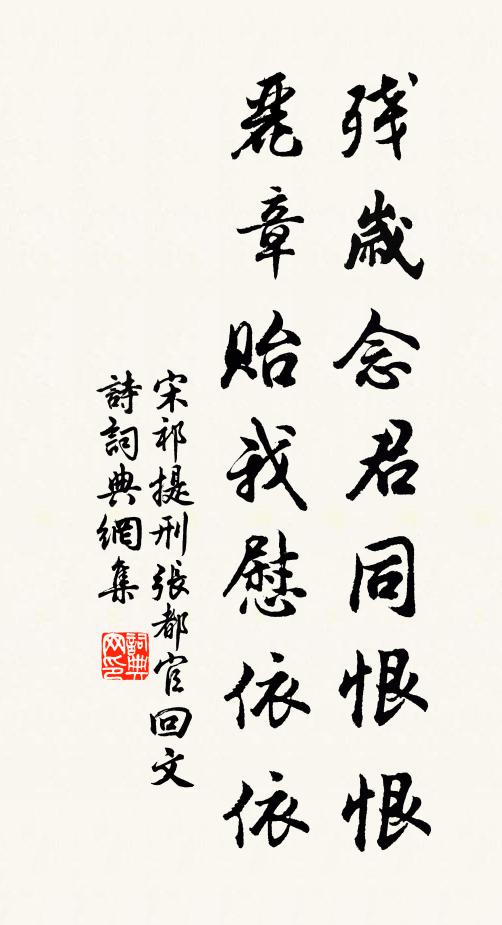 残歲念君同恨恨
麗章貽我慰依依
宋祁提刑張都官回文
詩詞典網集
詞典网印